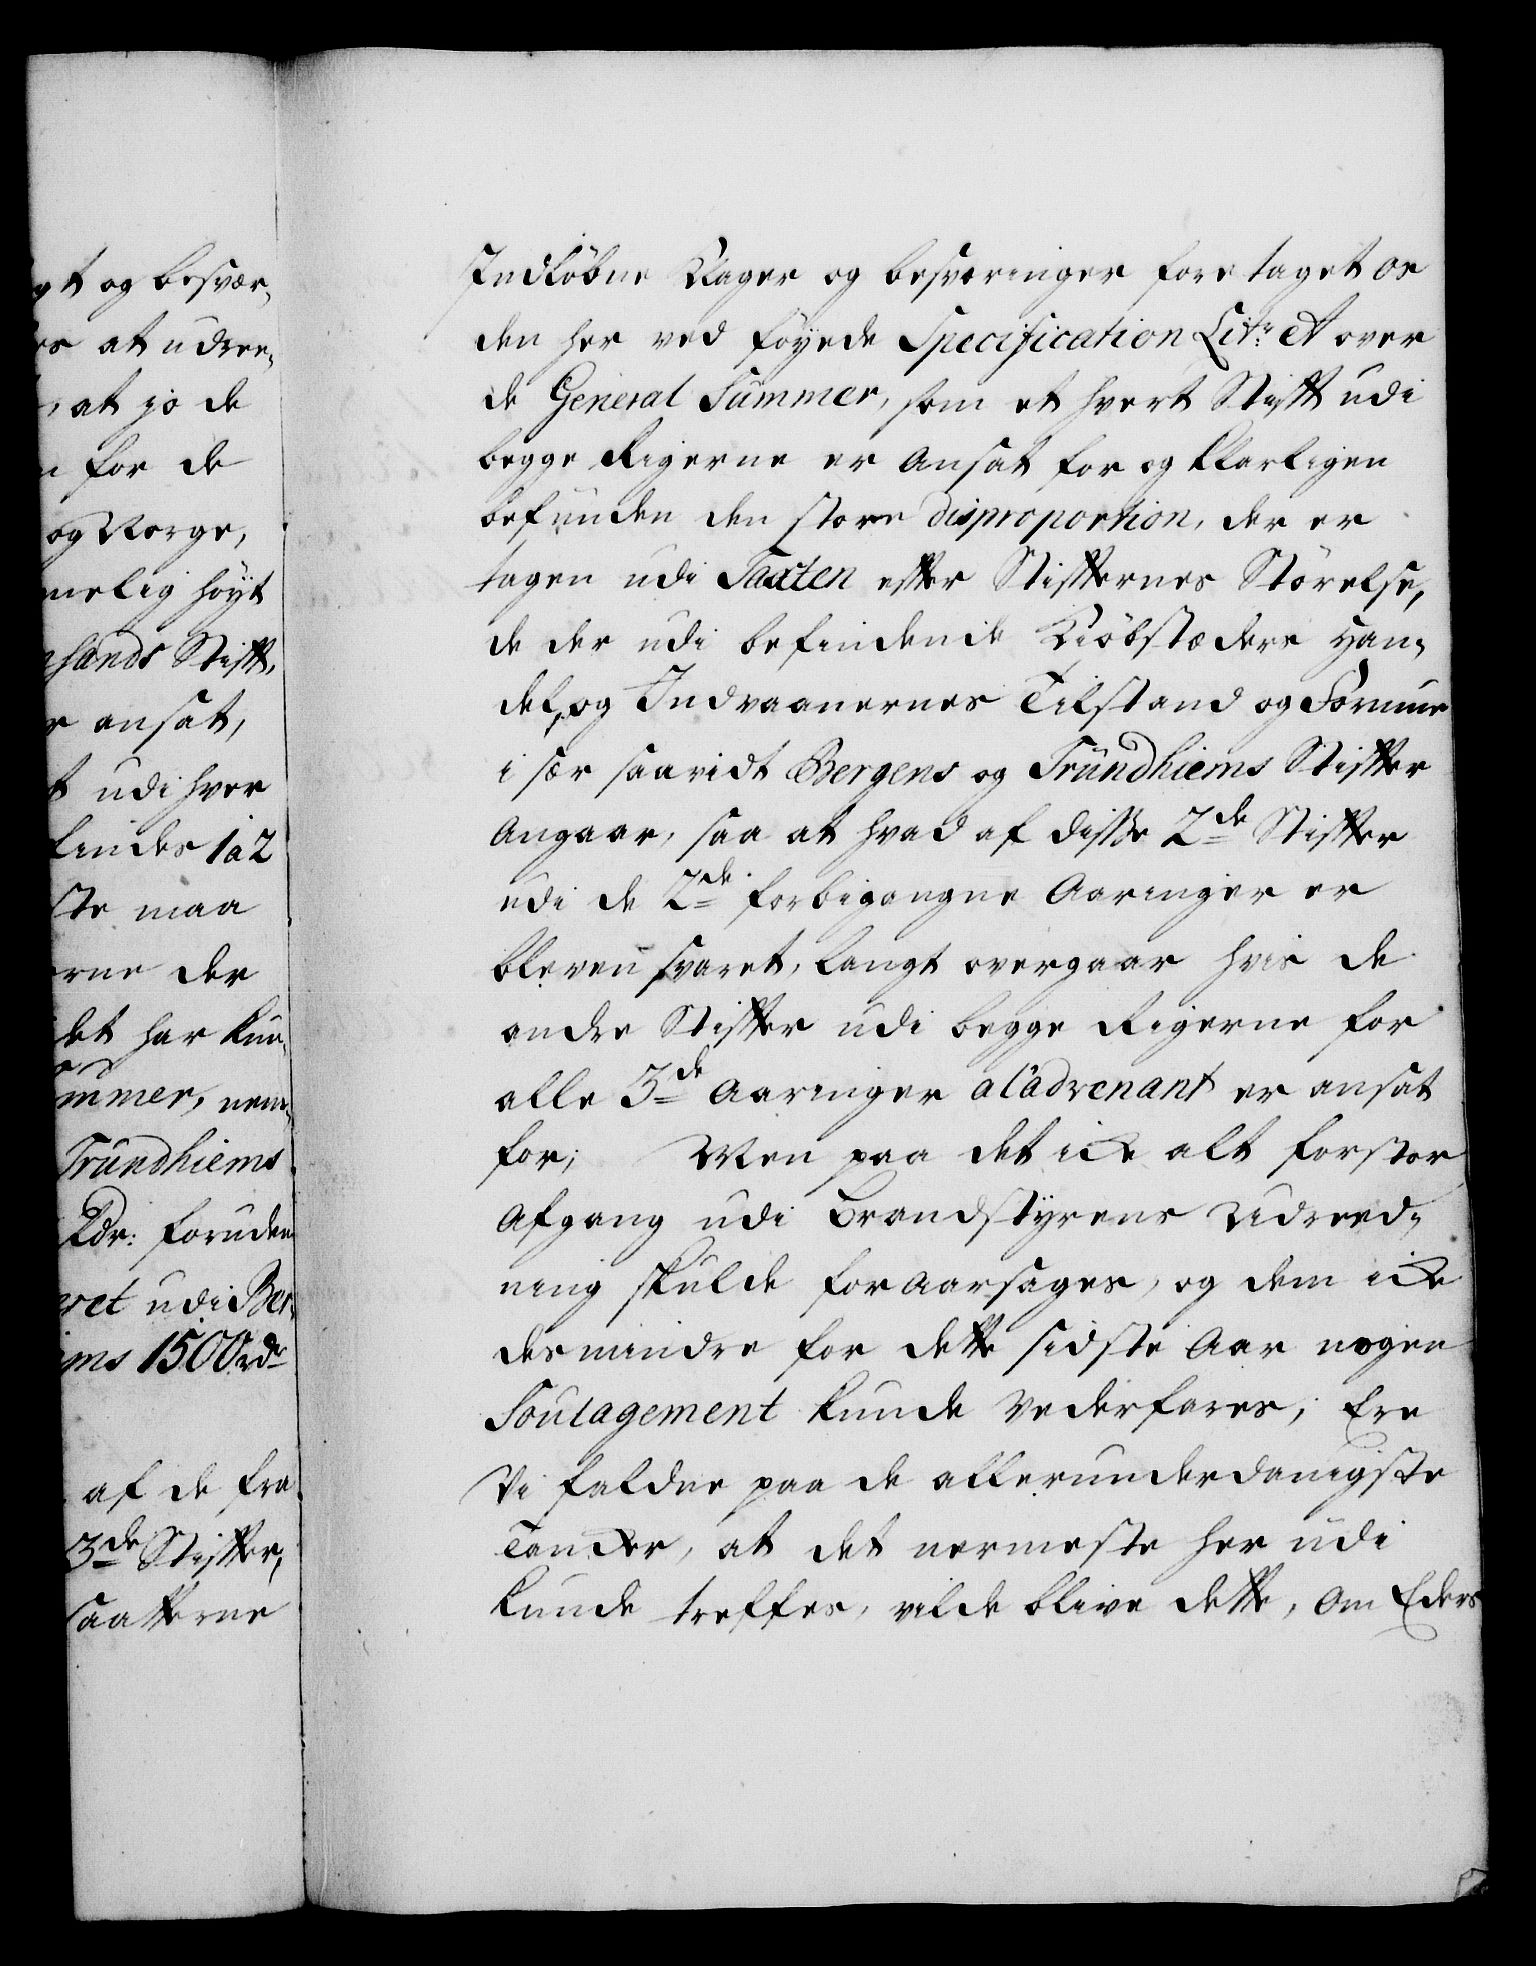 gt og besvær,
es at udree,
, at jo de
n for de
og Norge,
melig høyt
nsands Stifft,
r ansat,
t udi hver
findes 1 a 2
ste maa
erne der
det har kun,
ummer, nem,
Trundhiems
Rdr: foruden
eret udi Ber,
ims 1500 rdr
af de fra
3de Stiffter,
saatterne
Indkøbne Klager og besværinger foretaget os
den her ved føyede Specification Litr: A over
de General Summer, som et hvert Stifft udi
begge Rigerne er Ansat for og klarligen
befunden den store disproportion, der er
tagen udi Taxten effter Stiffternes Størelse,
de der udi befindende Kiøbstæders Han,
del, og Indvaanernes Tilstand og Formue
i sær saavidt Bergens og Trundhiems Stiffter
Angaar, saa at hvad af disse 2de Stiffter
udi de 2de forbigangne Aaringer er
bleven svaret, langt overgaar hvis de
andre Stiffter udi begge Rigerne for
alle 3de Aaringer al'advenant er ansat
for; Men paa det icke alt forstor
Afgang udi Brandstyrens Udreed,
ning skulde foraarsages, og dem icke
desmindre for dette sidste Aar nogen
Soulagement kunde Vederfares; Ere
Vi faldne paa de allerunderdanigste
Tancker, at det nermeste her udi
kunde treffes, vilde blive dette, Om Eders